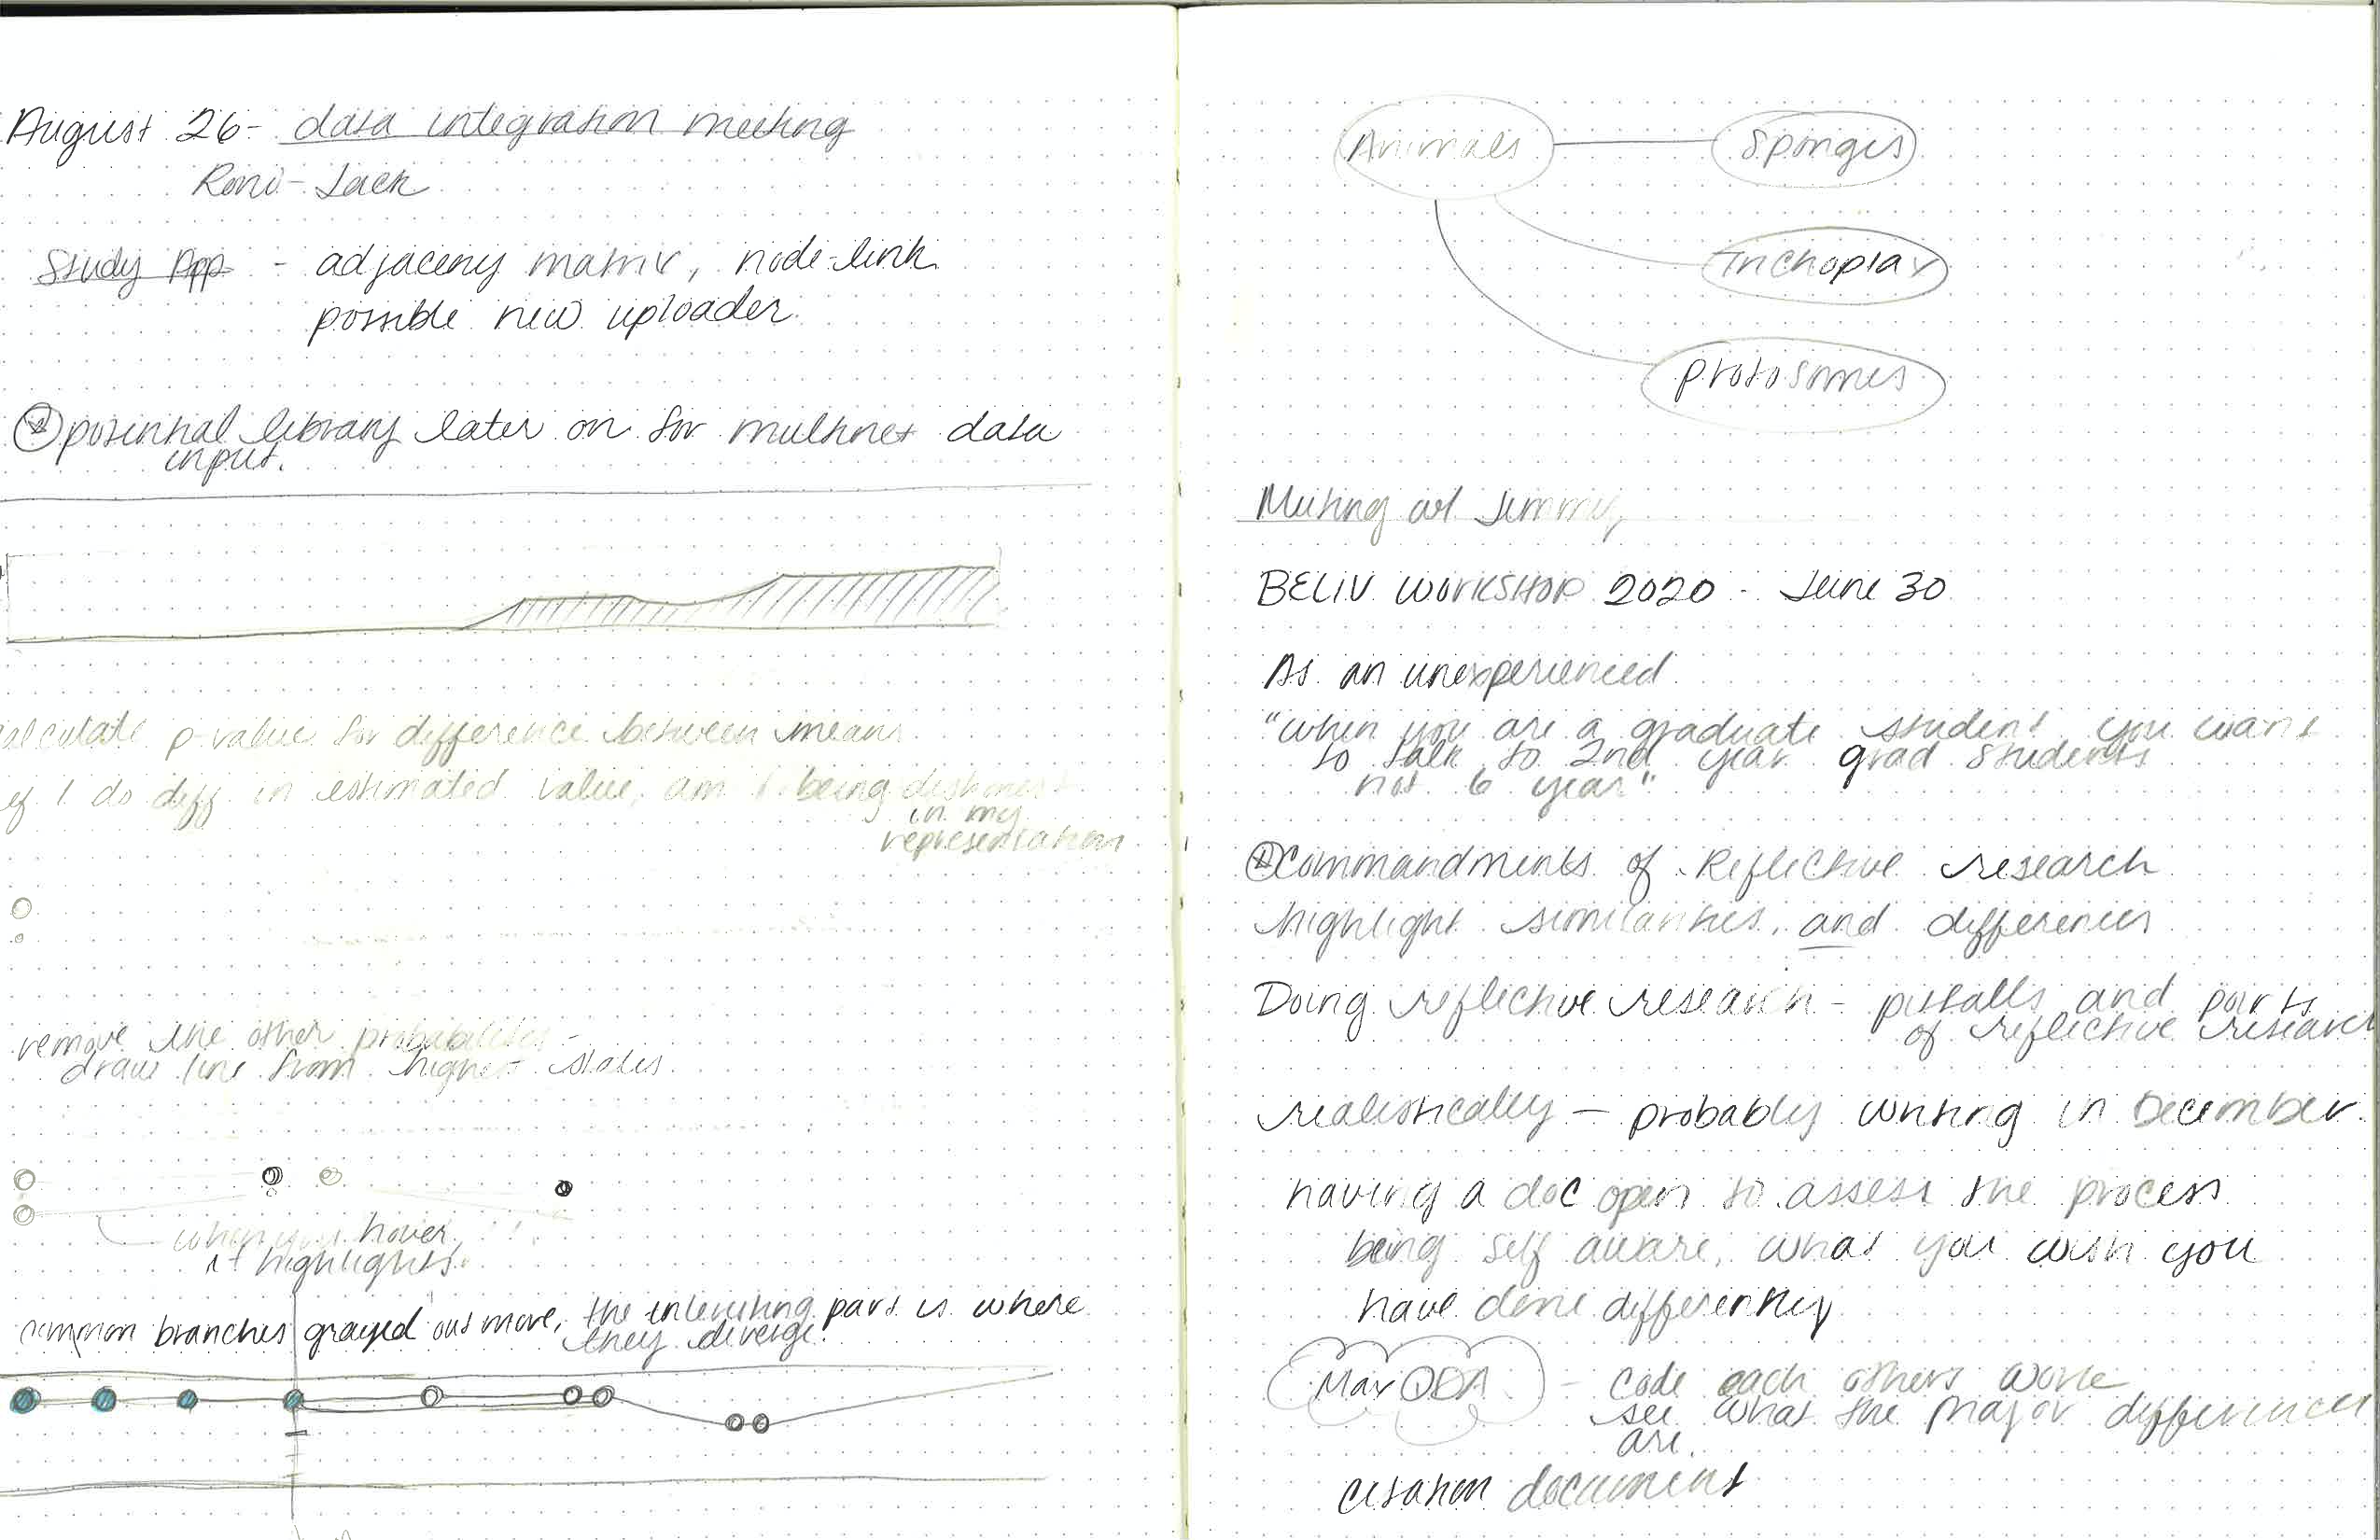 August 26- data integration meeting
Roni- Jack
Study App - adjaceny matrix, node-link
possible new uploader.
potential library later on for multinet data
input.
alculate p-value for difference between means
if I do diff in estimated value, am I being dishonest
in my
representation
remove the other probabilities -
draw line from highest states
when you hover
it highlights.
common branches grayed out more, the interesting part is where
they diverge.
Animals
Sponges
Trichoplax
protosomes
Meeting w/ Jimmy
BELIV WORKSHOP 2020 - June 30
As an unexperienced
"when you are a graduate student you want
to talk to 2nd year grad students
not 6 year"
Commandments of Reflective research
highlight similarities, and differences
Doing reflective research - pitfalls and
of reflective research
realistically - probably writing in December.
having a doc open to assess the process
being self aware, what you wish you
have done differently
MaxQDA - code each others work
see what the major differences
are.
citation document